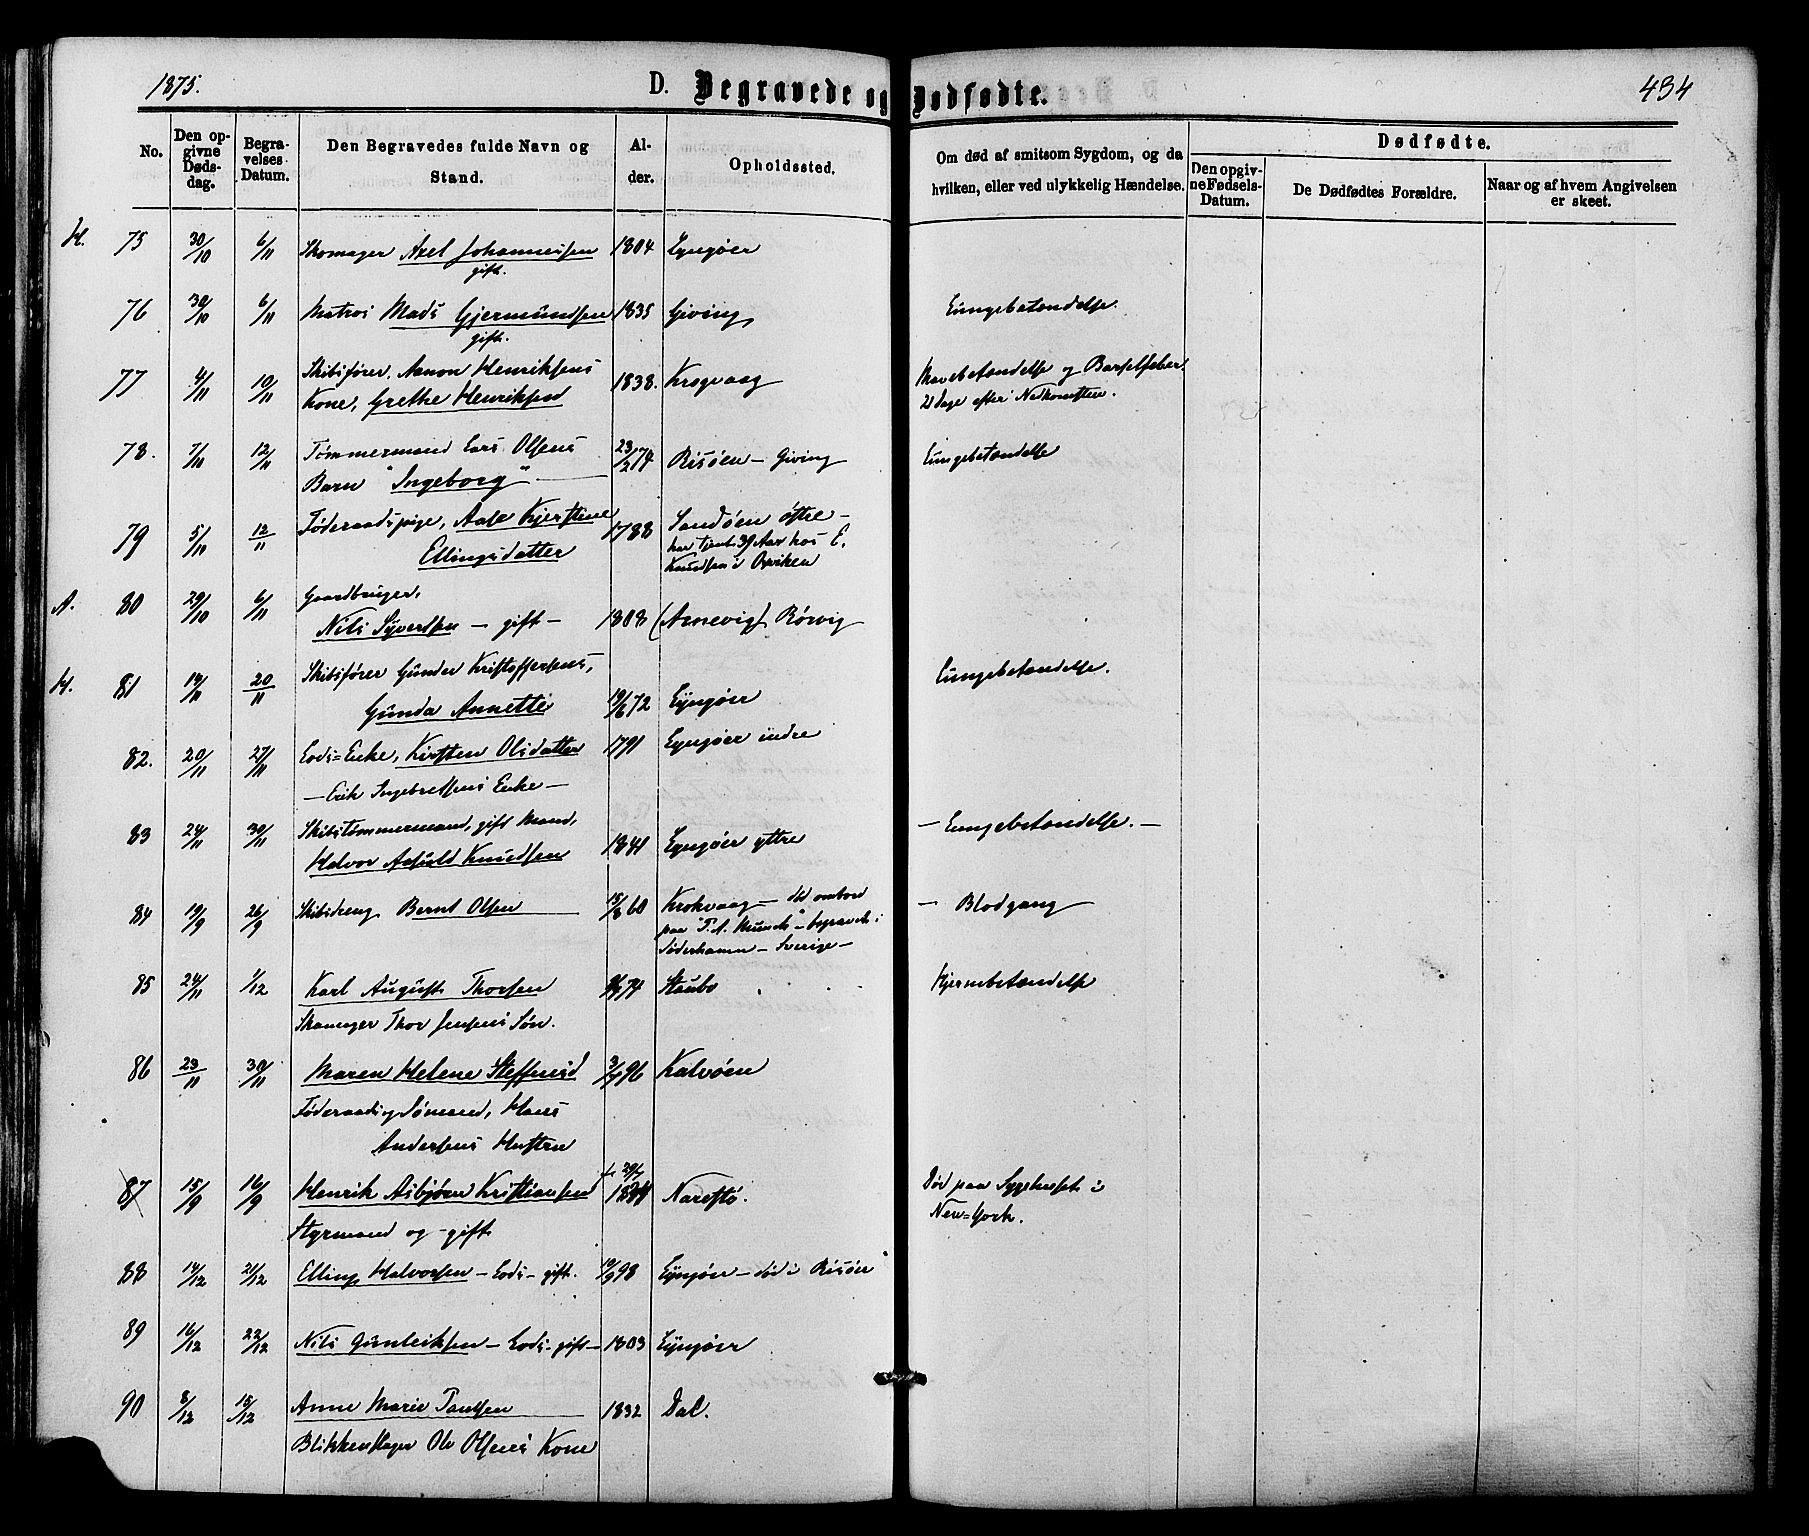 1875.
D. Begravede og Dødfødte.
434
No.
Den opgivne Dødsdag.
Begravelses Datum.
Den Begravedes fulde Navn og Stand.
Alder.
Opholdssted.
Om død af smitsom Sygdom, og da hvilken, eller ved ulykkelig Hændelse.
Dødfødte.
Den opgivne Fødsels-Datum.
De Dødfødtes Forældre.
Naar og af hvem Angivelsen er skeet.
H. 75 30/10 6/11 Skomager Axel Johannessen 1804 Lyngøer
gift.
76 30/10 6/11 Matros Mads Gjermundsen 1835 Giving Lungebetændelse.
gift.
77 4/11 10/11 Skibsfører, Aanon Henriksens 1838. Krogvaag Mavebetændelse og Barselfeber.
Kone, Grethe Henriksen 21 Dage efter Nedkomsten.
78. 7/11 12/11 Tømmermand Lars Olsens 23/2 74 Risøen - Giving Lungebetændelse
Barn "Ingeborg"
79 5/11 12/11 Føderaadspige, Aase Kjerstine 1788 Sandøen østre -
Ellingsdatter har tjent 39 Aar hos E.
Knudsen i Osviken
A. 80 29/10 6/11 Gaardbruger,
Nils Syvertsen - gift - 1808 (Arnevig) Rørvig
H. 81 14/11 20/11 Skibsfører Gunder Kristoffersens, Lungebetændelse.
Gunda Annette 19/6 72 Lyngøer
82. 20/11 27/11 Lods=Enke, Kirsten Olsdatter 1791 Lyngøer indre
- Erik Ingebretsens Enke -
83 24/11 30/11 Skibstømmermand, gift Mand, - Lungebetændelse. -
Halvor Aasuld Knudsen 1841 Lyngøer yttre
84 19/9 26/9 Skibsdreng Bernt Olsen 15/8 60 Krokvaag - død ombord - Blodgang
paa "P.A. Munch" - begravet i
Søderhamn - Sverige -
85 24/11 1/12 Karl August Thorsen 74 Staubo Hjernebetændelse
Skomager Thor Jensens Søn.
86 23/11 30/11 Maren Helene Steffensd 3/7 96 Kalvøen
Føderaads og Sømand, Hans
Andersens Hustru
87 15/9 16/9 Henrik Asbjørn Kristiansen 1844 Narestø. Død paa Sygehuset i
Styrmand og gift New=York.
88 14/12 21/12 Elling Halvorsen - Lods - gift. 19/9 98 Lyngøer - død i Risøer
89 16/12 22/12 Nils Gunleiksen - Lods - gift - 1803 Lyngøer
90 8/12 15/12 Anne Marie Paulsen 1832 Dal.
Blikkenslager Ole Olsens Kone